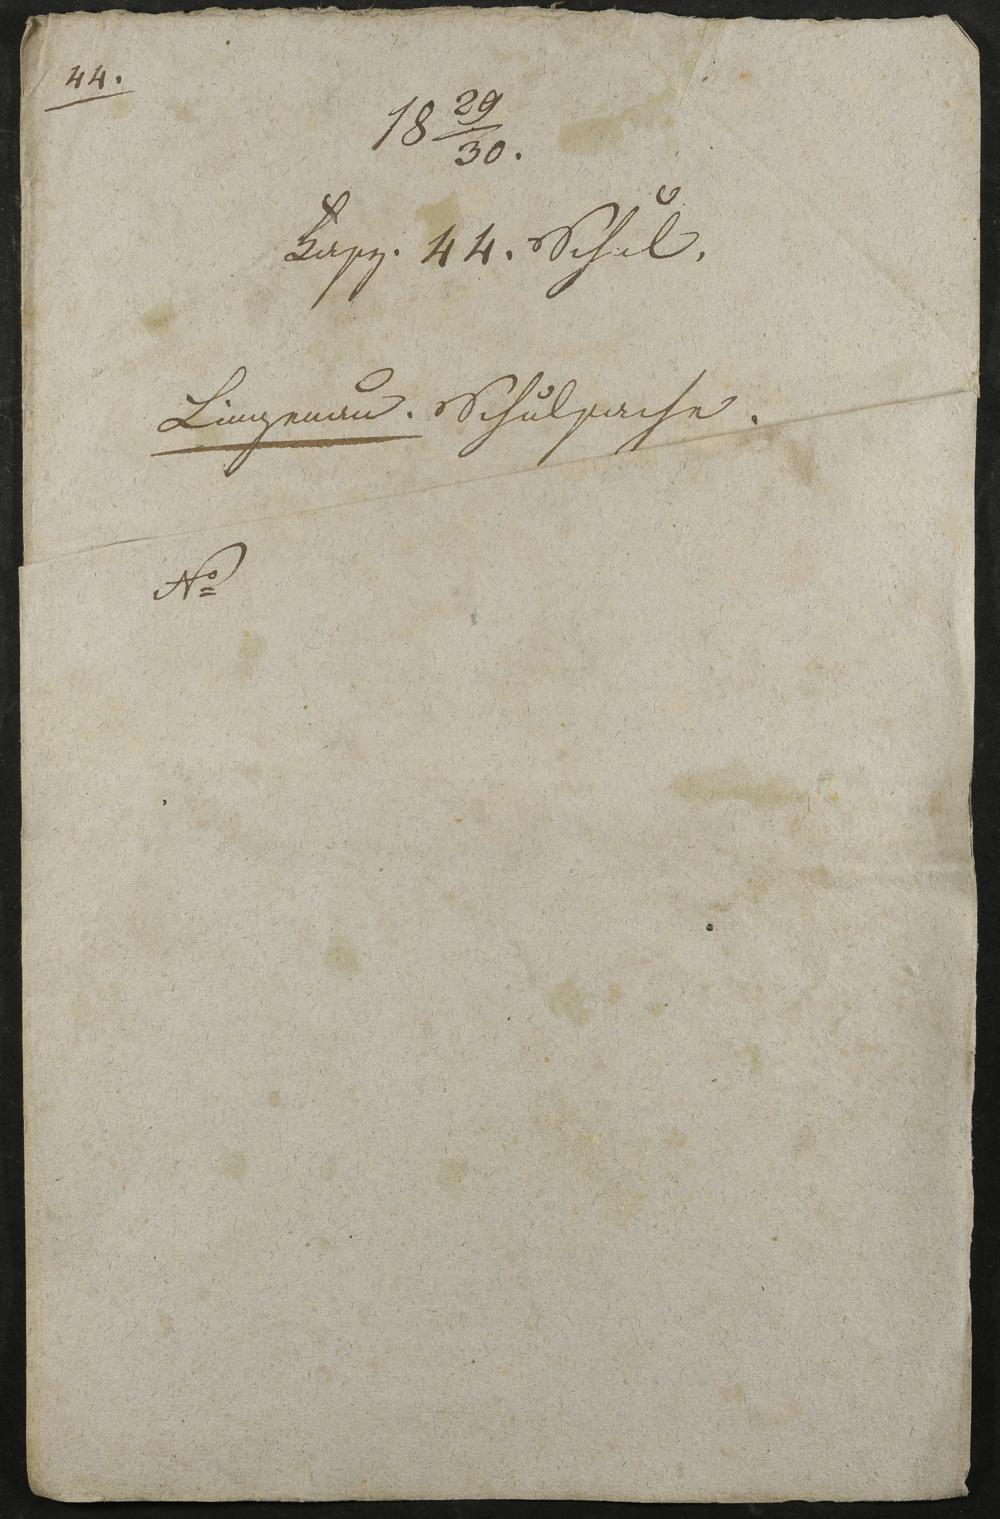 44.
18 29/30.
Kapp. 44. Schul.
Lingenau. Schulsache.
No